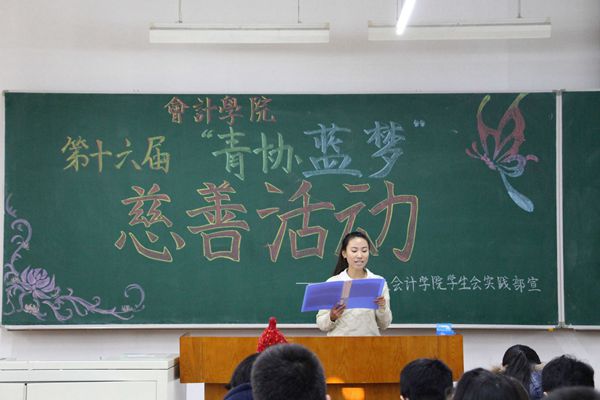 會計學院
第十六届
“青协蓝梦”
慈善活动
——会计学院学生会实践部宣